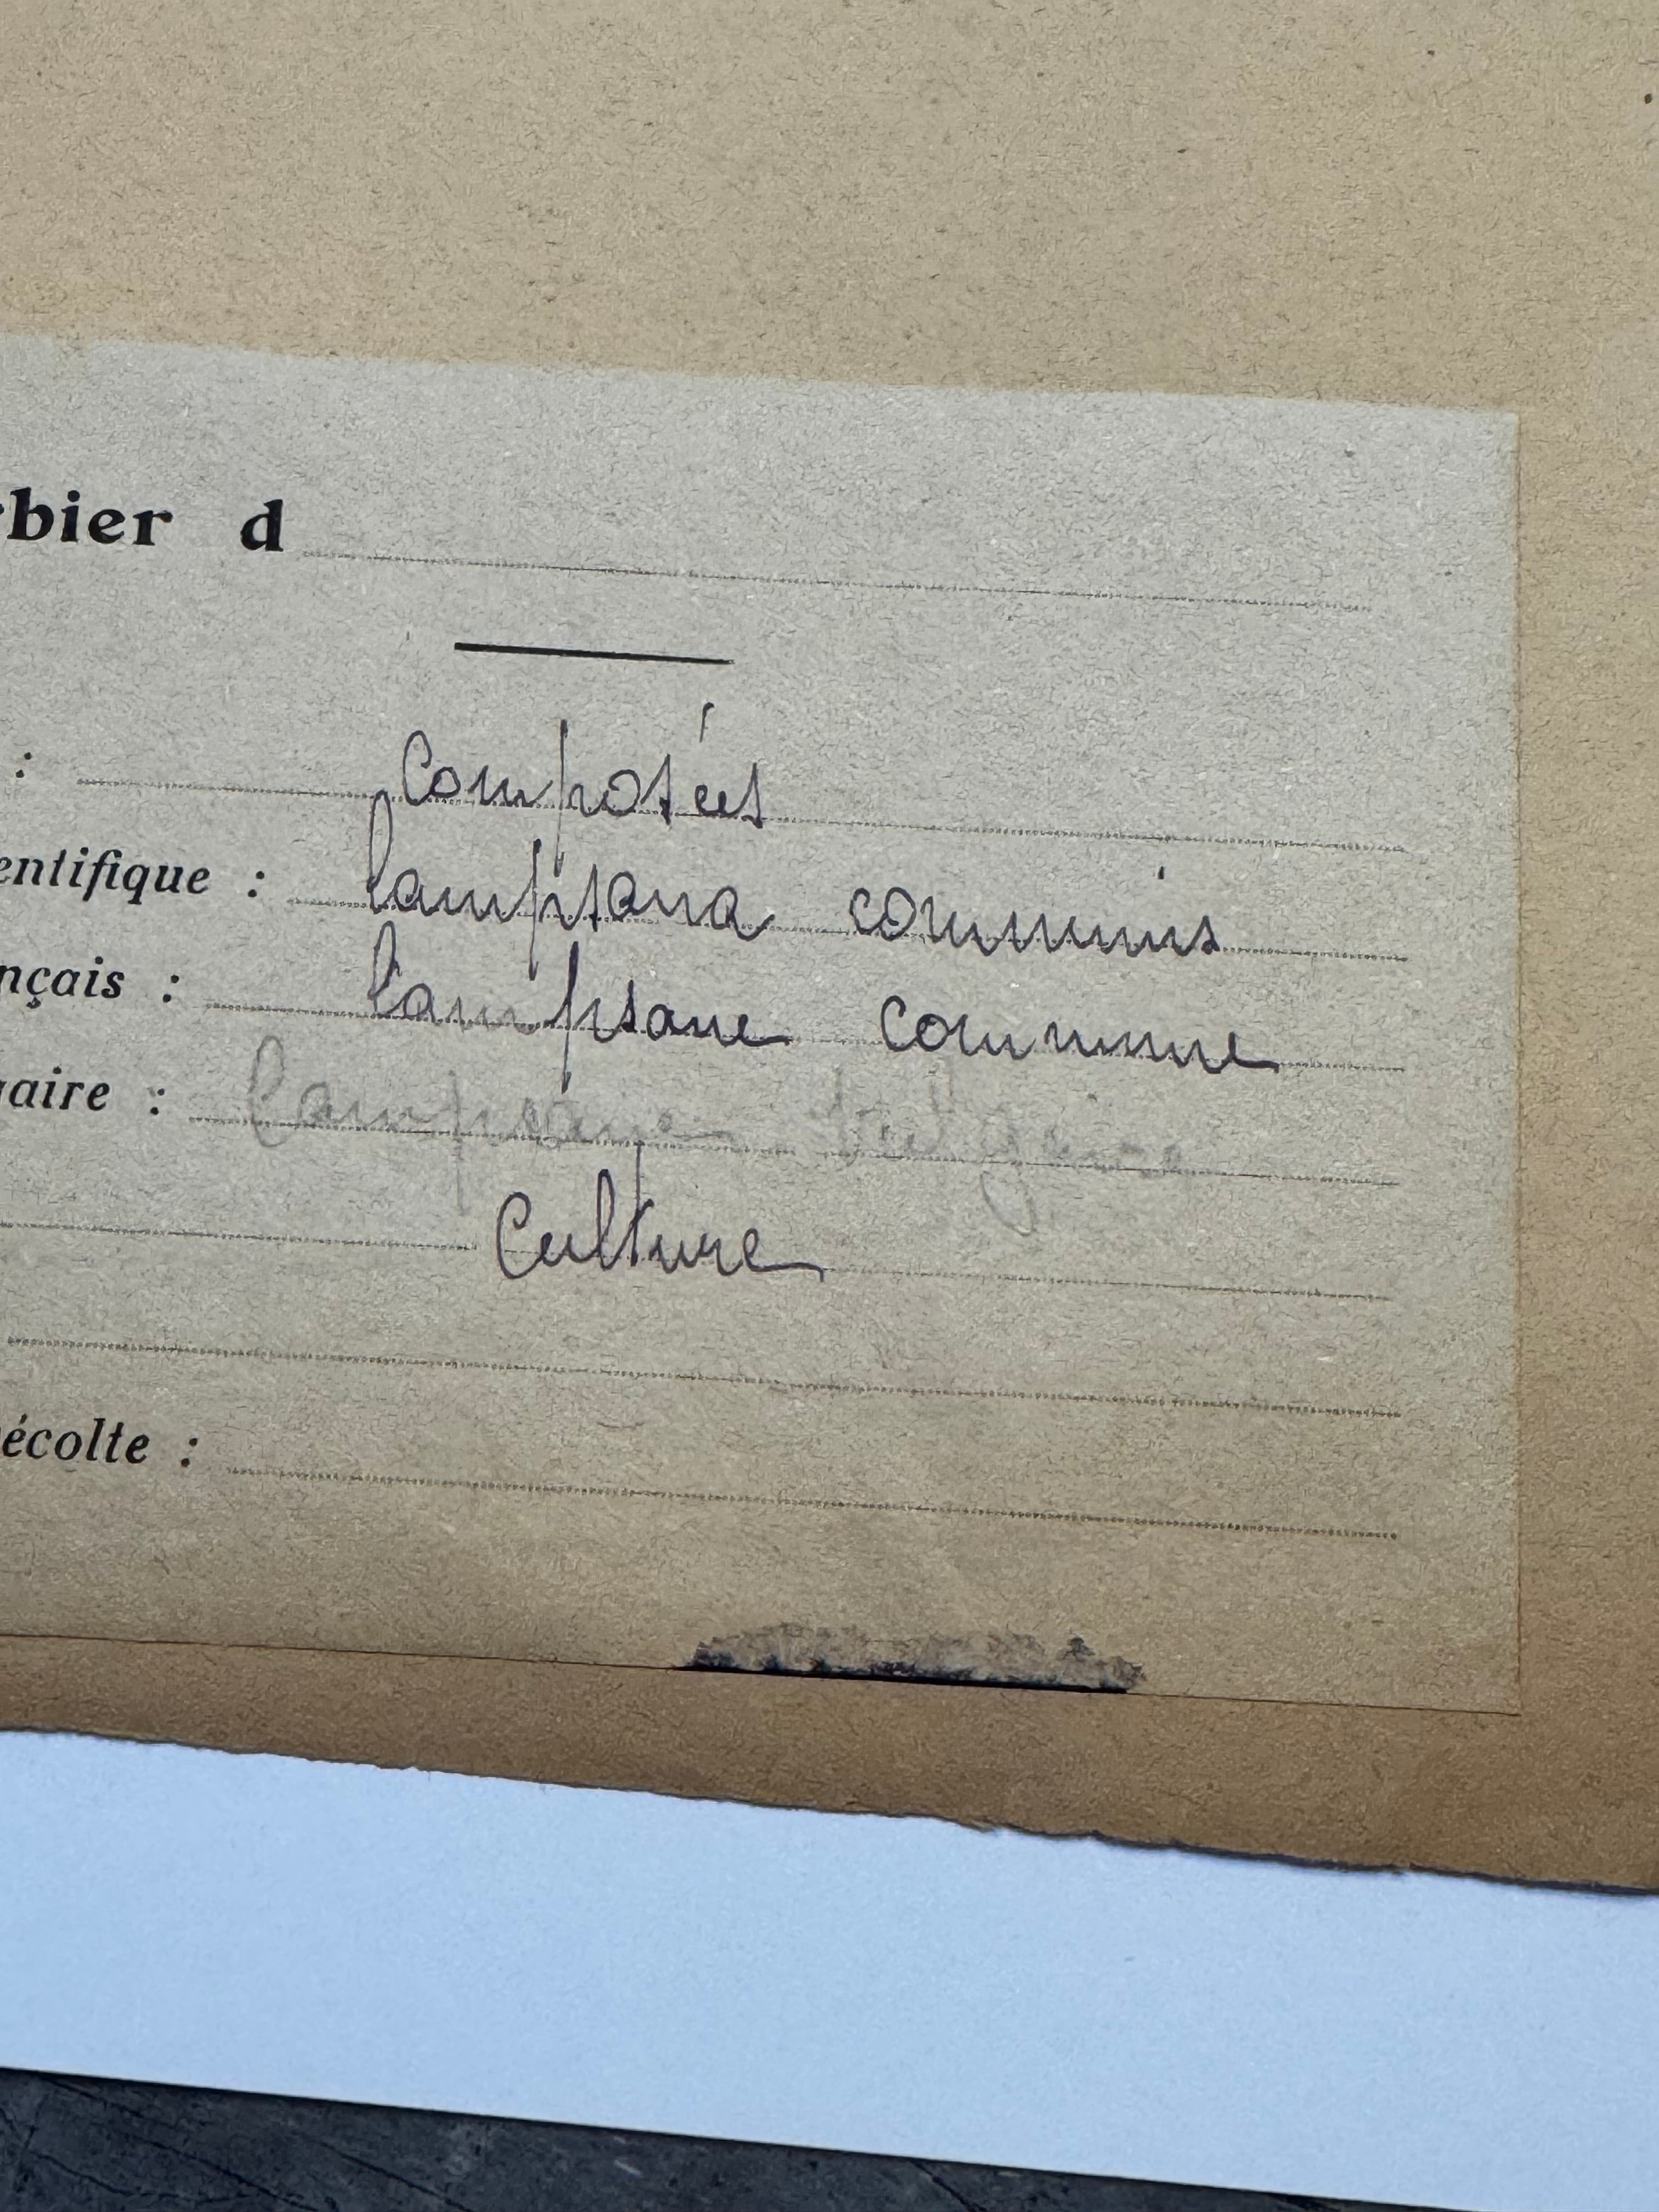 rbier d
: Composées
entifique : Lampsana communis
nçais : Lampsane commune
aire : Lampsane
Culture
écolte :